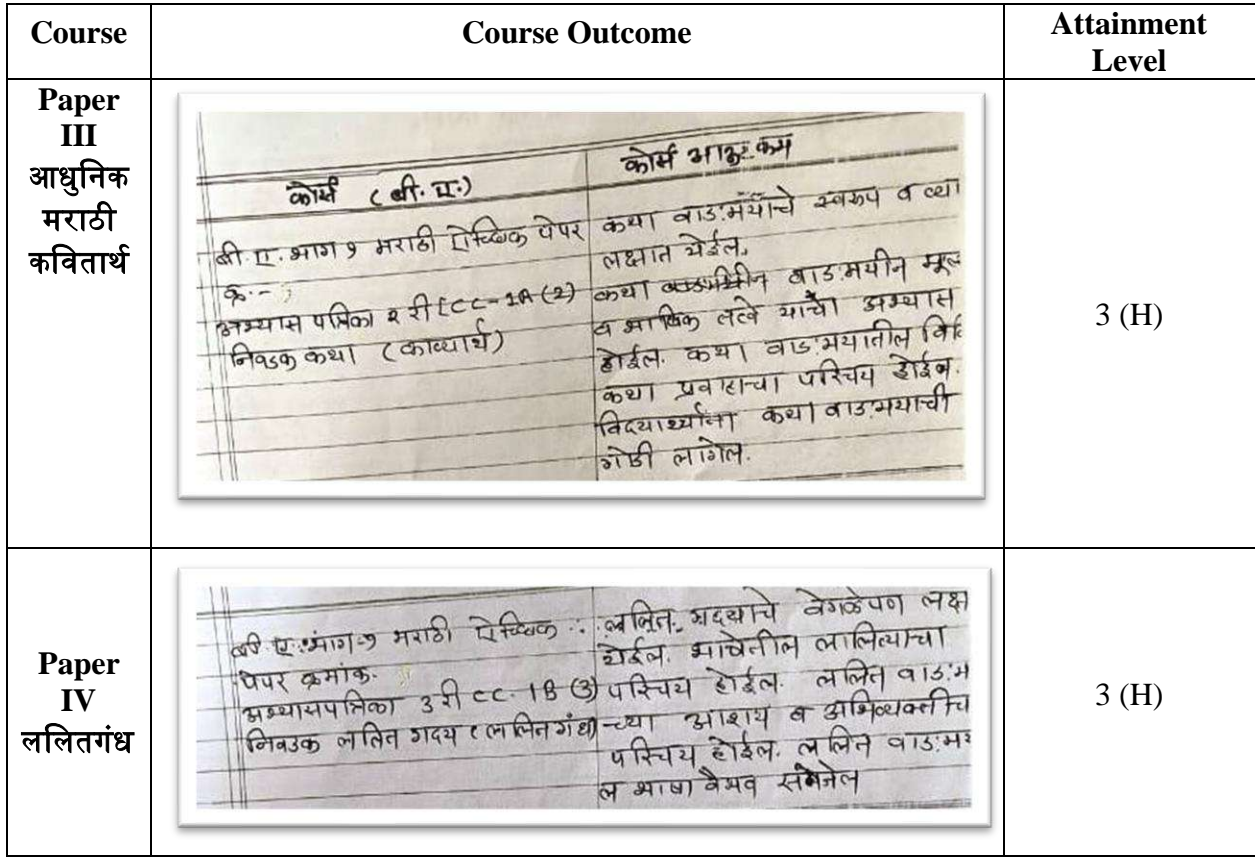 Course Course Outcome Attainment Level
Paper III
आधुनिक
मराठी
कवितार्थ
कोर्स (बी. ए.)
बी. ए. भाग १ मराठी ऐच्छिक पेपर
क्र.-
अभ्यास पत्रिका २ री [CC-1A (2)
निवडक कथा (काव्यार्थ)
कोर्स
कथा वाङ:मयाचे स्वरूप व व्या
लक्षात येईल.
कथा वाङ:मयीन मूल
व भाषिक तत्वे यांचा अभ्यास
होईल. कथा वाङ:मयातील
कथा प्रवाहाचा परिचय होईल.
विदयार्थ्यांना कथा वाङ:मयाची
गोडी लागेल.
3 (H)
Paper
IV
ललितगंध
बी. ए. भाग-१ मराठी ऐच्छिक
पेपर क्रमांक-
अभ्यासपत्रिका ३ री CC-1B (3)
निवडक ललित गदय (ललितगंध)
ललित गदयाचे वेगळेपण लक्ष
येईल. भाषेतील लालित्याचा
परिचय होईल. ललित वाङ:म
-च्या आशय व अभिव्यक्तीच
परिचय होईल. ललित वाङ:मय
ल भाषा वैभव समजेल
3 (H)